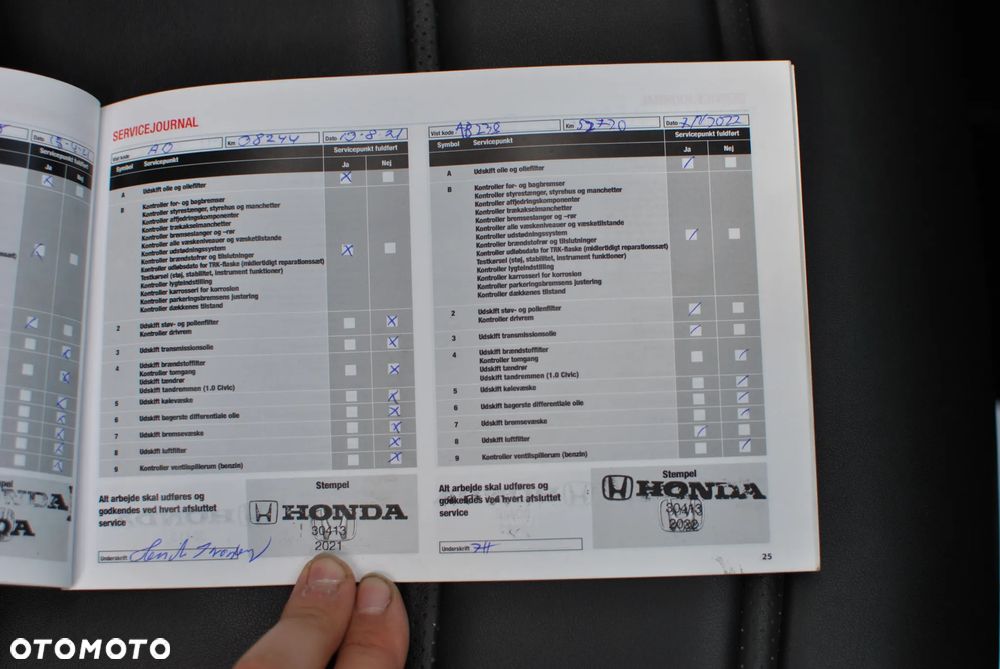 SERVICEJOURNAL
Vist kode AO Km 38244 Dato 13-8-21
Symbol Servicepunkt Servicepunkt fuldført
Ja Nej
A Udskift olie og oliefilter
B Kontroller for- og bagbremser
Kontroller styrestænger, styrehus og manchetter
Kontroller affjedringskomponenter
Kontroller trækakselmanchetter
Kontroller bremseslanger og –rør
Kontroller alle væskeniveauer og væsketilstande
Kontroller udstødningssystem
Kontroller brændstofrør og tilslutninger
Kontroller udløbsdato for TRK-flaske (midlertidigt reparationssæt)
Testkørsel (støj, stabilitet, instrument funktioner)
Kontroller lygteindstilling
Kontroller karrosseri for korrosion
Kontroller parkeringsbremsens justering
Kontroller dækkenes tilstand
2 Udskift støv- og pollenfilter
Kontroller drivrem
3 Udskift transmissionsolie
4 Udskift brændstoffilter
Kontroller tomgang
Udskift tændrør
Udskift tandremmen (1.0 Civic)
5 Udskift kølevæske
6 Udskift bagerste differentiale olie
7 Udskift bremsevæske
8 Udskift luftfilter
9 Kontroller ventilspillerum (benzin)
Alt arbejde skal udføres og
godkendes ved hvert afsluttet
service
Stempel
HONDA
30413
2021
Underskrift
Vist kode AB238 Km 52720 Dato 7/11/2022
Symbol Servicepunkt Servicepunkt fuldført
Ja Nej
A Udskift olie og oliefilter
B Kontroller for- og bagbremser
Kontroller styrestænger, styrehus og manchetter
Kontroller affjedringskomponenter
Kontroller trækakselmanchetter
Kontroller bremseslanger og –rør
Kontroller alle væskeniveauer og væsketilstande
Kontroller udstødningssystem
Kontroller brændstofrør og tilslutninger
Kontroller udløbsdato for TRK-flaske (midlertidigt reparationssæt)
Testkørsel (støj, stabilitet, instrument funktioner)
Kontroller lygteindstilling
Kontroller karrosseri for korrosion
Kontroller parkeringsbremsens justering
Kontroller dækkenes tilstand
2 Udskift støv- og pollenfilter
Kontroller drivrem
3 Udskift transmissionsolie
4 Udskift brændstoffilter
Kontroller tomgang
Udskift tændrør
Udskift tandremmen (1.0 Civic)
5 Udskift kølevæske
6 Udskift bagerste differentiale olie
7 Udskift bremsevæske
8 Udskift luftfilter
9 Kontroller ventilspillerum (benzin)
Alt arbejde skal udføres og
godkendes ved hvert afsluttet
service
Stempel
HONDA
30413
2022
Underskrift ZH
25
OTOMOTO